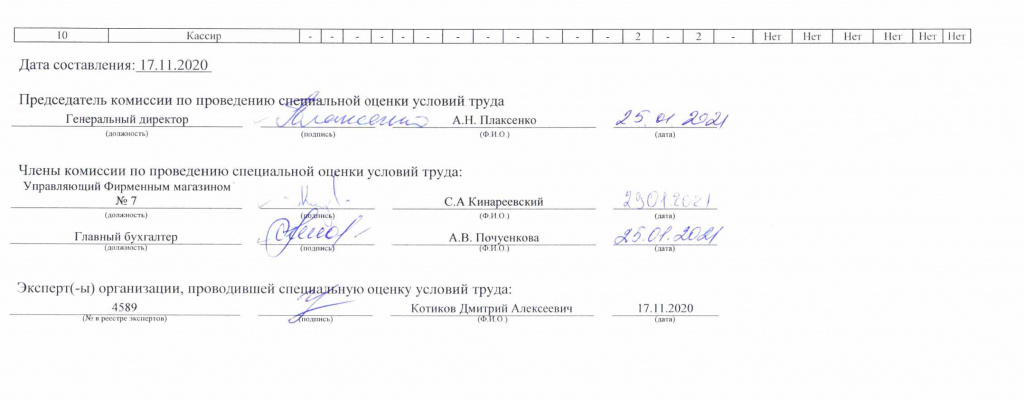 10 Кассир - - - - - - - - - - - - - - 2 - 2 - Нет Нет Нет Нет Нет Нет
Дата составления: 17.11.2020
Председатель комиссии по проведению специальной оценки условий труда
Генеральный директор А.Н. Плаксенко 25.01 2021
(должность) (подпись) (Ф.И.О.) (дата)
Члены комиссии по проведению специальной оценки условий труда:
Управляющий Фирменным магазином
№ 7 С.А Кинареевский
(должность) (подпись) (Ф.И.О.) (дата)
Главный бухгалтер А.В. Почуенкова 25.01.2021
(должность) (подпись) (Ф.И.О.) (дата)
Эксперт(-ы) организации, проводившей специальную оценку условий труда:
4589 Котиков Дмитрий Алексеевич 17.11.2020
(№ в реестре экспертов) (подпись) (Ф.И.О.) (дата)